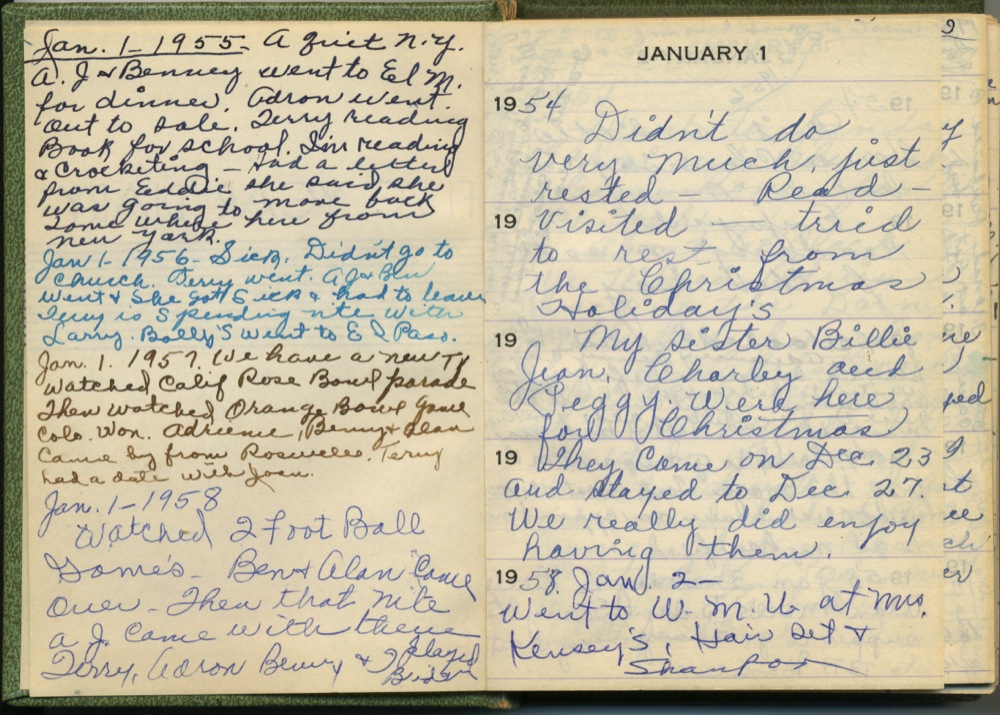 Jan. 1 - 1955 - A quiet N.Y.
A. J & Benney went to El M.
for dinner. Adron went
out to sale. Terry reading
Book for school. I'm reading
& Crocketing - Had a letter
from Eddie she said she
was going to move back
some where here from
new York.
Jan 1 - 1956 - Sick. Didn't go to
Church. Terry went. A J & Ben
went & she got Sick & had to leave
Terry is Spending nite with
Larry. Bolly's went to El Paso.
Jan. 1. 1957. We have a new TV
Watched Calif Rose Bowl parade
Then watched Orange Bowl Game
Colo. Won. Adrienne, Benny & Alan
Came by from Roswell. Terry
had a date with Joan.
Jan. 1 - 1958
Watched 2 Foot Ball
Game's - Ben & Alan Came
Over - Then that nite
A J. Came with them
Terry, Adron Benny & I played
JANUARY 1
1954
Didn't do
very much, just
rested - Read -
19 Visited - tried
to rest from
the Christmas
Holiday's
19 My sister Billie
Jean, Charley and
Peggy. were here
for Christmas
19 They Come on Dec. 23
and stayed to Dec. 27.
We really did enjoy
having them.
1958. Jan. 2 -
Went to W. M. U. at Mrs.
Kensey's, Hair set &